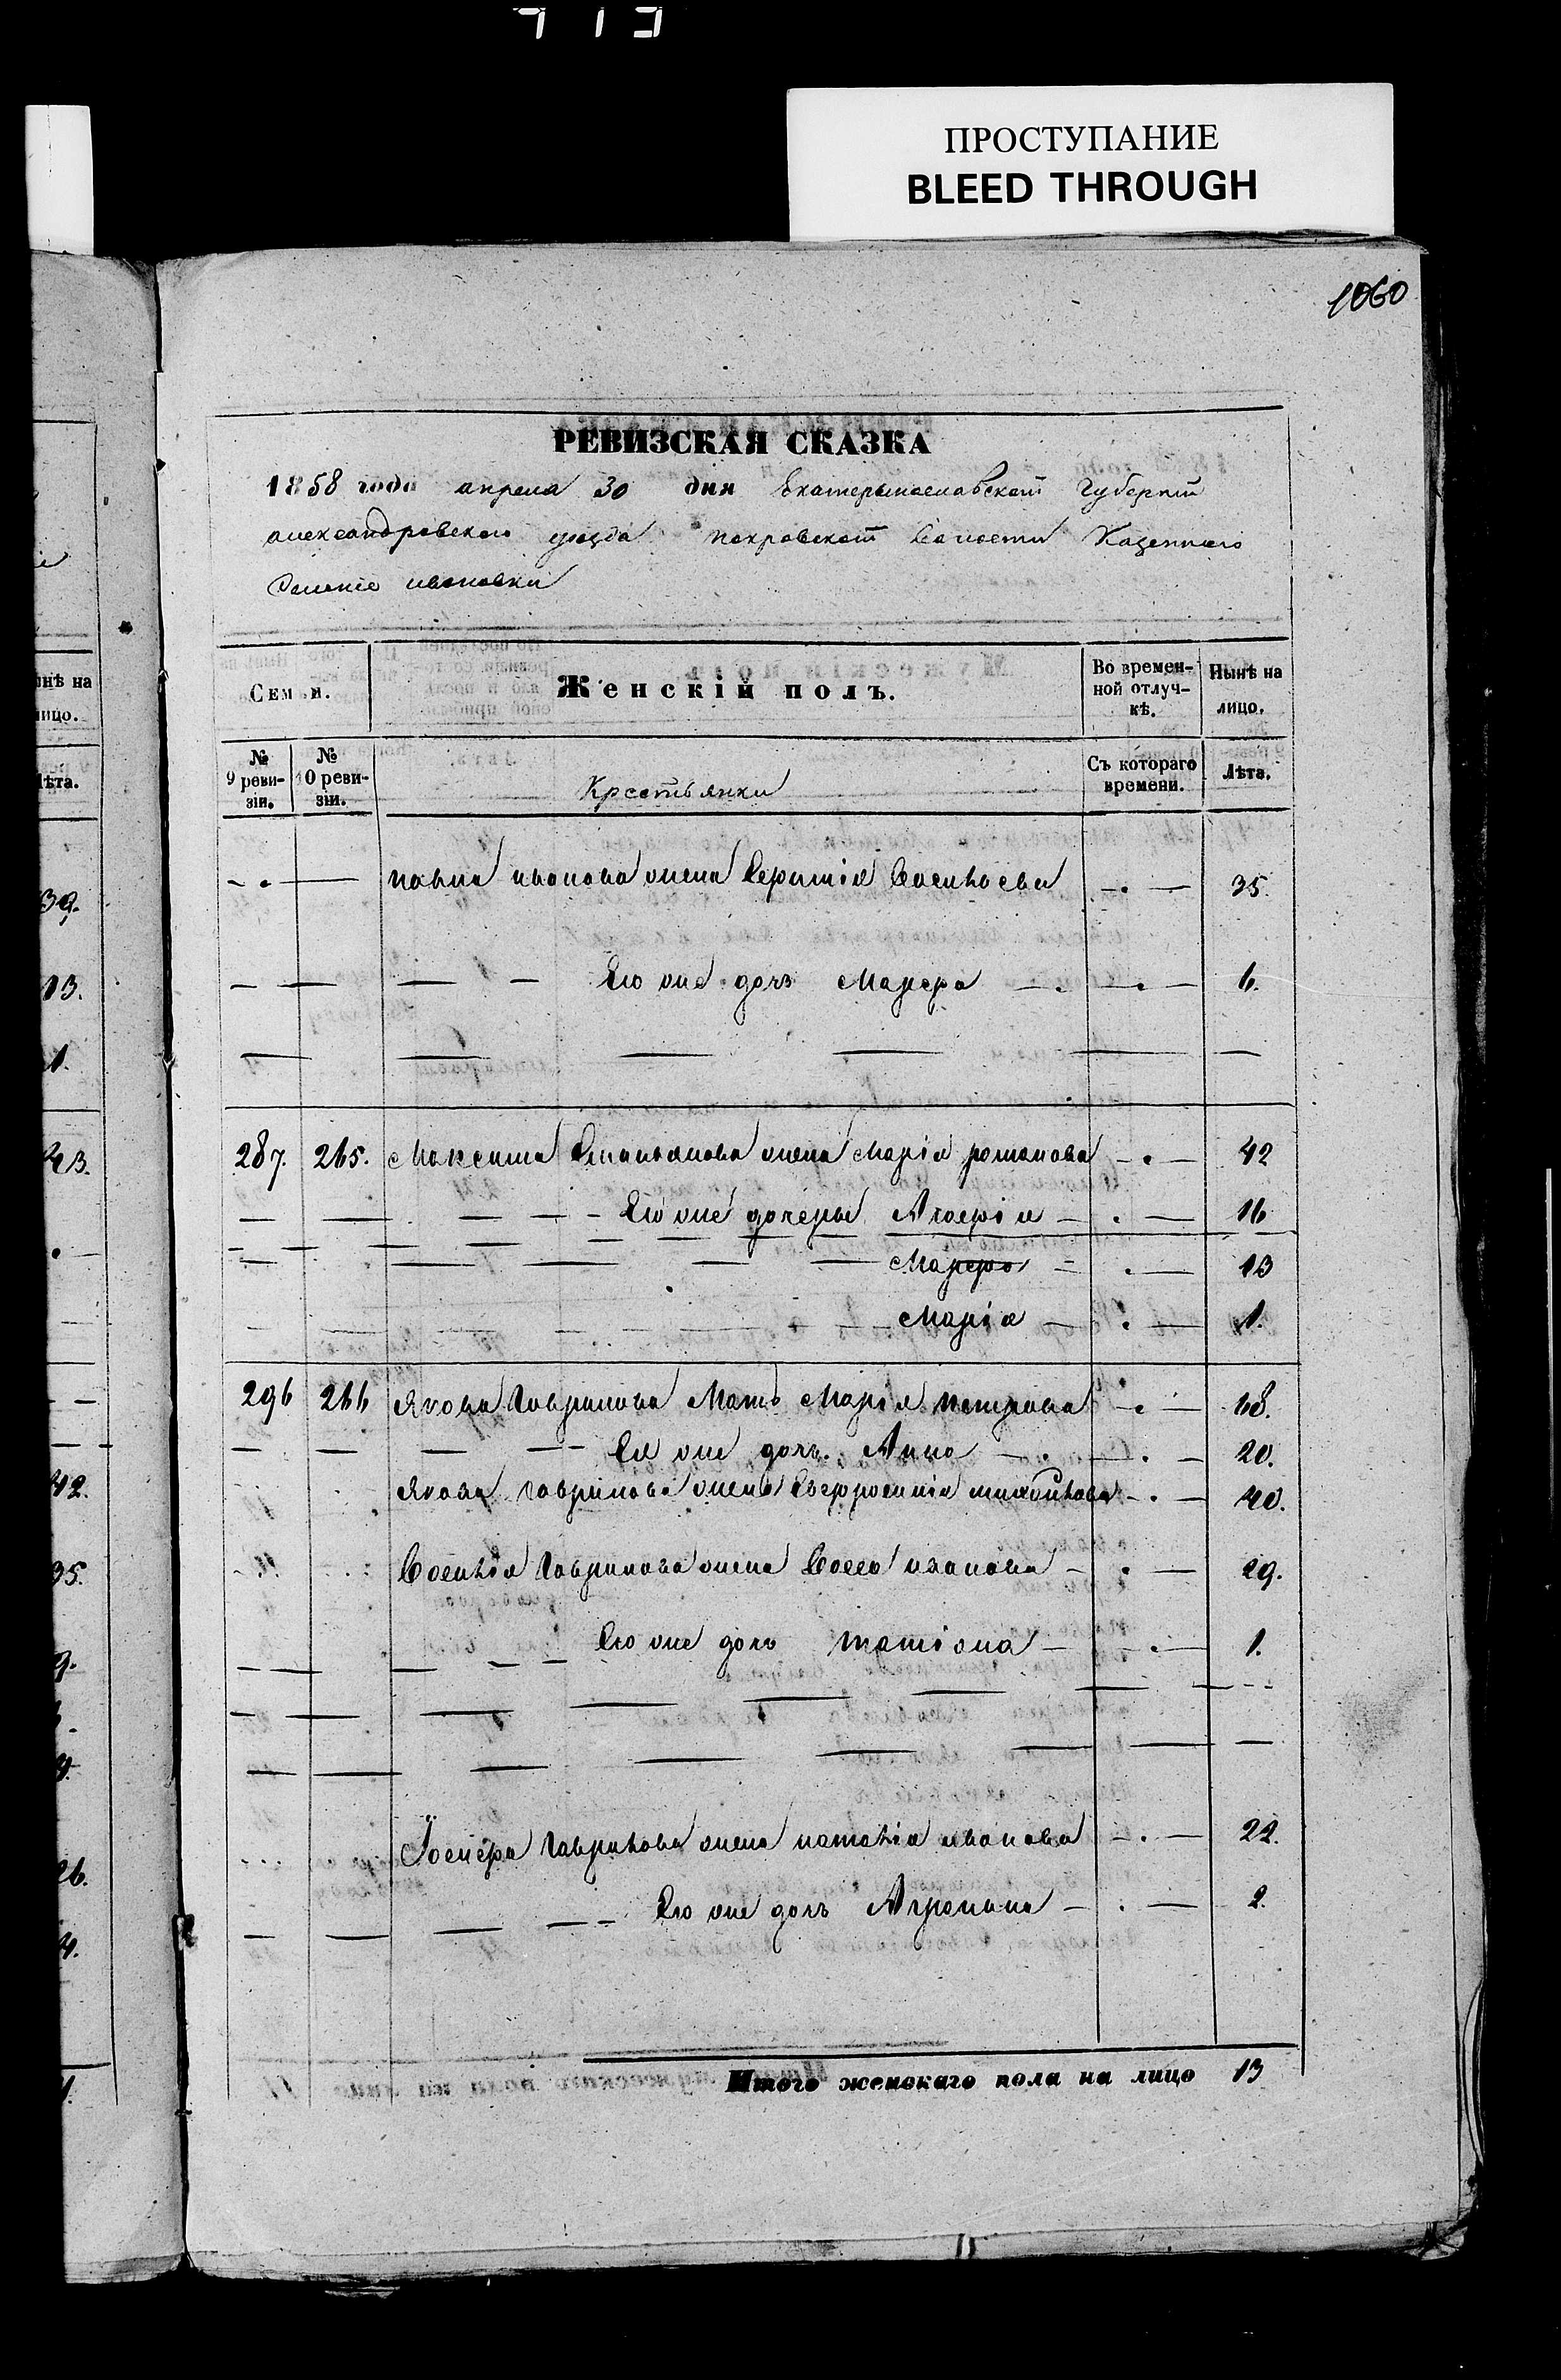 ПРОСТУПАНИЕ
BLEED THROUGH
1060
РЕВИЗСКАЯ СКАЗКА
1858 года апреля 30 дня Екатеринославской Губернии
александровского уезда покровской волости Казенного
Селения ивановки
Семьи.
Женскій полъ.
Во времен-
ной отлуч-
кѣ.
Нынѣ на
лицо.
№
9 реви-
зіи.
№
10 реви-
зіи.
Крестьянки
Съ котораго
времени.
Лѣта.
павла иванова жена Васильева 35.
Его же дочь Марфа 6.
287. 265. Максима жена Марія романова 42
Его же дочеры Агафія 16
Марфа 13
Марія 1.
296 266 Якова Гаврилова Мать Марія петрова 68.
Ея же дочь Анна 20.
Якова Гаврилова жена Евфросинія 40.
Василія Гаврилова жена иванова 29.
Его же дочь татіяна 1.
Гаврилова жена наталія иванова 22.
Его же дочь Агрепина 2.
Итого женскаго пола на лицо 13